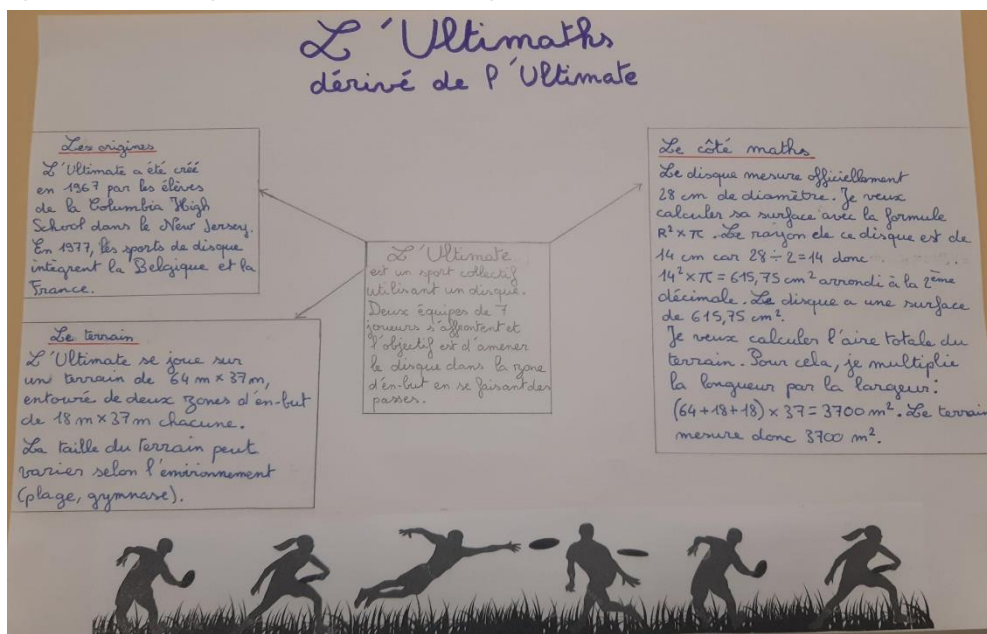 L'Ultimaths
dérivé de l'Ultimate
Les origines
L'Ultimate a été créé
en 1967 par les élèves
de la Columbia High
School dans le New Jersey.
En 1977, les sports de disque
intègrent la Belgique et la
France.
Le terrain
L'Ultimate se joue sur
un terrain de 64 m × 37 m,
entouré de deux zones d'en-but
de 18 m × 37 m chacune.
La taille du terrain peut
varier selon l'environnement
(plage, gymnase).
L'Ultimate
est un sport collectif
utilisant un disque.
Deux équipes de 7
joueurs s'affrontent et
l'objectif est d'amener
le disque dans la zone
d'en-but en se faisant des
passes.
Le côté maths
Le disque mesure officiellement
28 cm de diamètre. Je veux
calculer sa surface avec la formule
R² × π. Le rayon de ce disque est de
14 cm car 28 ÷ 2 = 14 donc
14² × π = 615,75 cm² arrondi à la 2ème
décimale. Le disque a une surface
de 615,75 cm².
Je veux calculer l'aire totale du
terrain. Pour cela, je multiplie
la longueur par la largeur :
(64+18+18) × 37 = 3700 m². Le terrain
mesure donc 3700 m².